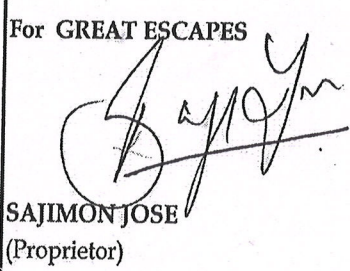 For GREAT ESCAPES
SAJIMON JOSE
(Proprietor)